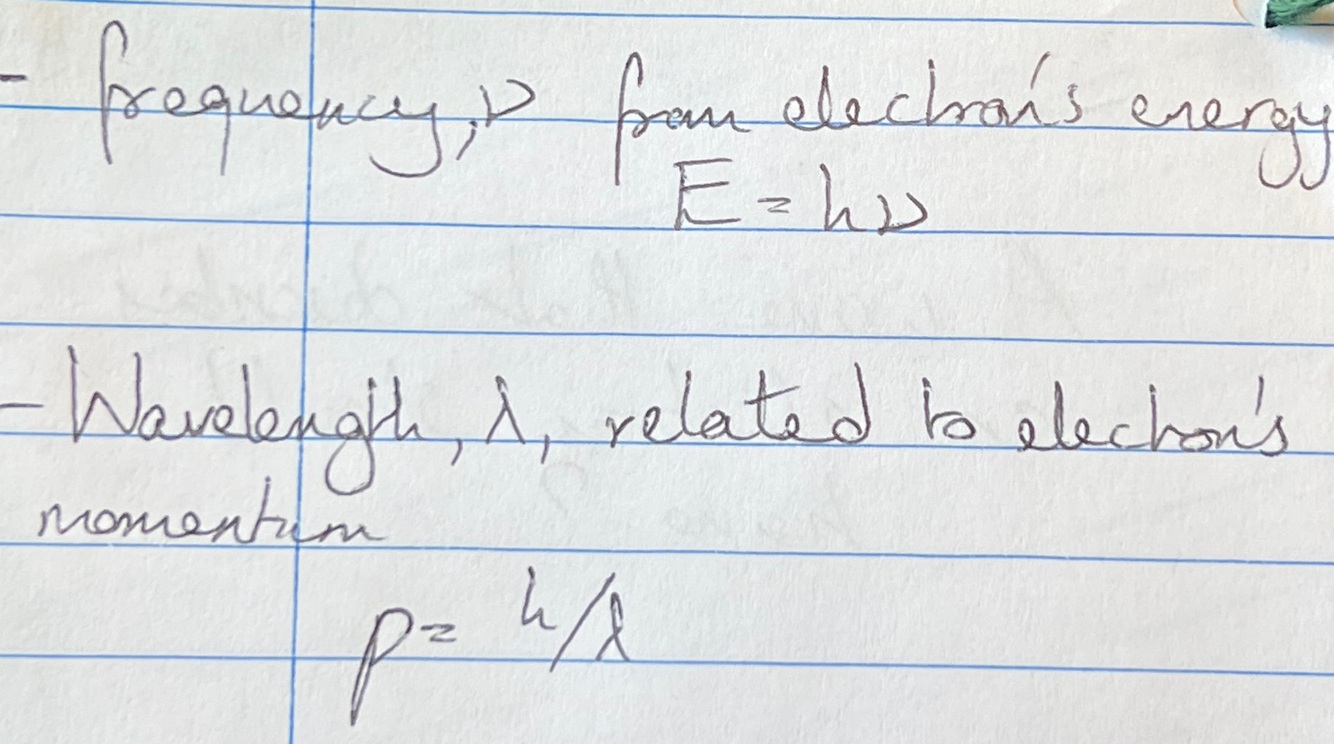 - frequency, ν from electron's energy
E = hν
- Wavelength, λ, related to electron's
momentum
p = h/λ